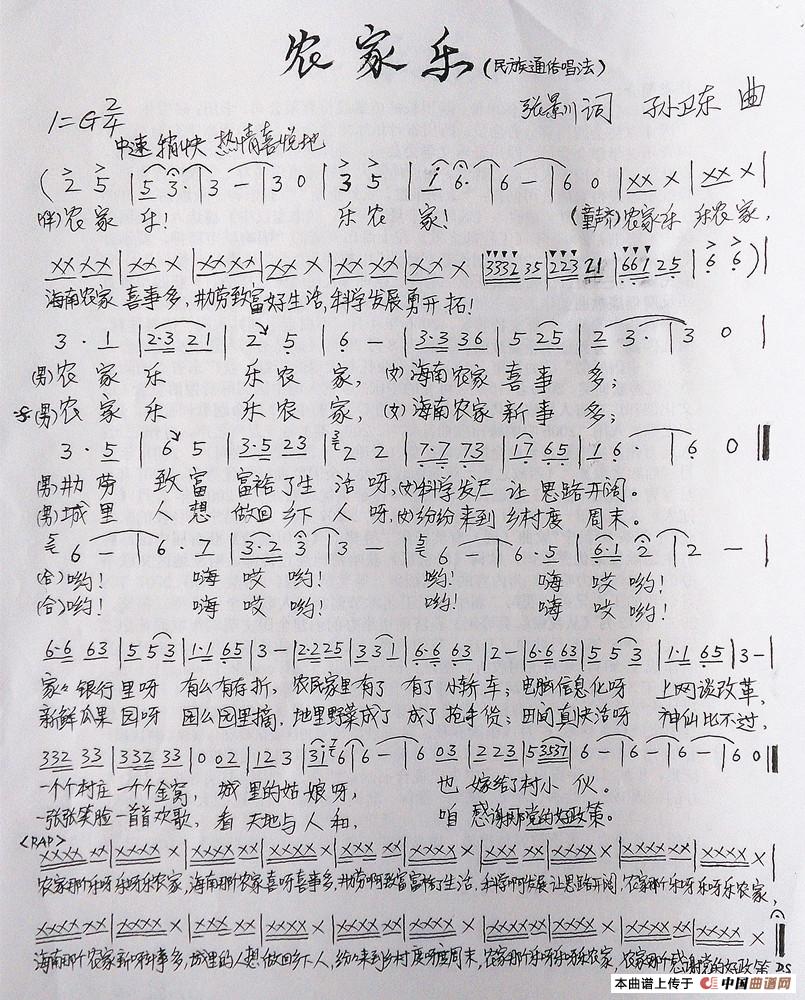 农家乐(民族通俗唱法)
1=G 2/4
张景川词 孙卫东曲
中速稍快 热情喜悦地
(2 5 | 5 3· | 3 — | 3 0 | 3 5 | 1 6· | 6 — | 6 0 | XX X | XX X |
(伴)农家乐! 乐农家! (童声齐)农家乐 乐农家,
XX XX | XX X | XX XX | XX X | XX XX | XX X | 3332 35 | 223 21 | 661 25 | 6 6) |
海南农家喜事多,勤劳致富好生活,科学发展勇开拓!
3 · 1 | 2·3 21 | 2 5 | 6 — | 3·3 36 | 5 25 | 2 3· | 3 0 |
(男)农家乐 乐农家,(女)海南农家喜事多;
(男)农家乐 乐农家,(女)海南农家新事多;
3 · 5 | 6 5 | 3·5 23 | 2 2 | 7·7 73 | 17 65 | 1 6· | 6 0
(男)勤劳致富富裕了生活呀,(女)科学发展让思路开阔。
(男)城里人想做回乡下人呀,(女)纷纷来到乡村度周末。
6 — | 6 · 7 | 3·2 3 | 3 — | 6 — | 6 · 5 | 6·1 2 | 2 — |
(合)哟! 嗨哎哟! 哟! 嗨哎哟!
(合)哟! 嗨哎哟! 哟! 嗨哎哟!
6·6 63 | 5 5 3 | 1·1 65 | 3 — | 2·2 25 | 3 3 1 | 6·6 63 | 2 — | 6·6 63 | 5 5 3 | 1·1 65 | 3 — |
家々银行里呀 有么有存折,农民家里有了 有了小轿车;电脑信息化呀 上网谈改革,
新鲜瓜果园呀 园么园里摘,地里野菜成了 成了抢手货;田间真快活呀 神仙比不过,
332 33 | 332 33 | 0 02 | 12 3 | 31 6 | 6 — | 6 03 | 22 3 | 5 3537 | 6 — | 6 — | 6 — | 6 0
一个个村庄一个个金窝,城里的姑娘呀, 也嫁给了村小伙。
一张张笑脸一首首欢歌,看天地与人和, 咱感谢那党的好政策。
<RAP>
XXXX XX | XXXX X | XXXX XX | XXXX X | XXXX XX | XXXX X | XXXX XX | XXXX X | XXXX XX | XXXX X |
农家那个乐呀乐呀乐农家,海南那个农家喜呀喜事多,勤劳啊致富富裕了生活,科学啊发展让思路开阔,农家那个乐呀乐呀乐农家,
XXXX XX | XXXX X | XXXX XX | XXXX X | XXXX XX | XXXX X | XXXX XX | XXXX X | XXXX XX | XXXX X |
海南那个农家新呀新事多,城里的人想做回乡下人,纷纷来到乡村度呀度周末,农家那个乐呀乐呀乐农家,农家那个感谢党的好政策 D.S
本曲谱上传于 中国曲谱网